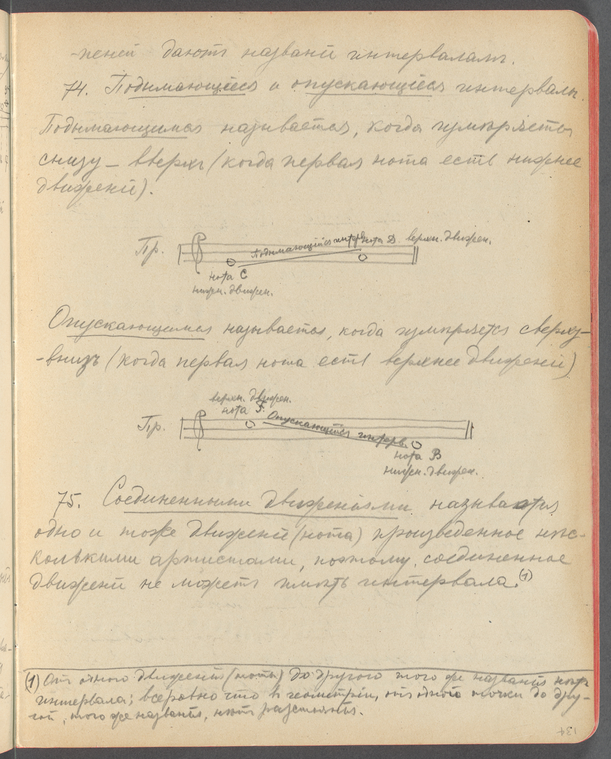 -пеней даютъ названіе интерваламъ.
74. Подымающіеся и опускающіеся интервалы.
Подымающимся называется, когда
снизу-вверхъ (когда первая нота есть нижнее
движеніе).
Пр.
Подымающійся интерв. нота D. верхн. движен.
нота C
нижн. движен.
Опускающимся называется, когда сверху-
-внизъ (когда первая нота есть верхнее движеніе)
верхн. движен.
нота F.
Опускающійся интерв.
Пр.
нота B
нижн. движен.
75. Соединенными движеніями называется
одно и тоже движеніе (нота) произведенное нѣс-
колькими артистами, поэтому, соединенное
движеніе не можетъ имѣть интервала. (1)
(1) Отъ одного движенія (ноты) до другого того же названія нѣтъ
интервала; всеравно что въ геометріи, отъ одной точки до дру-
гой, того же названія, нѣтъ разстоянія.